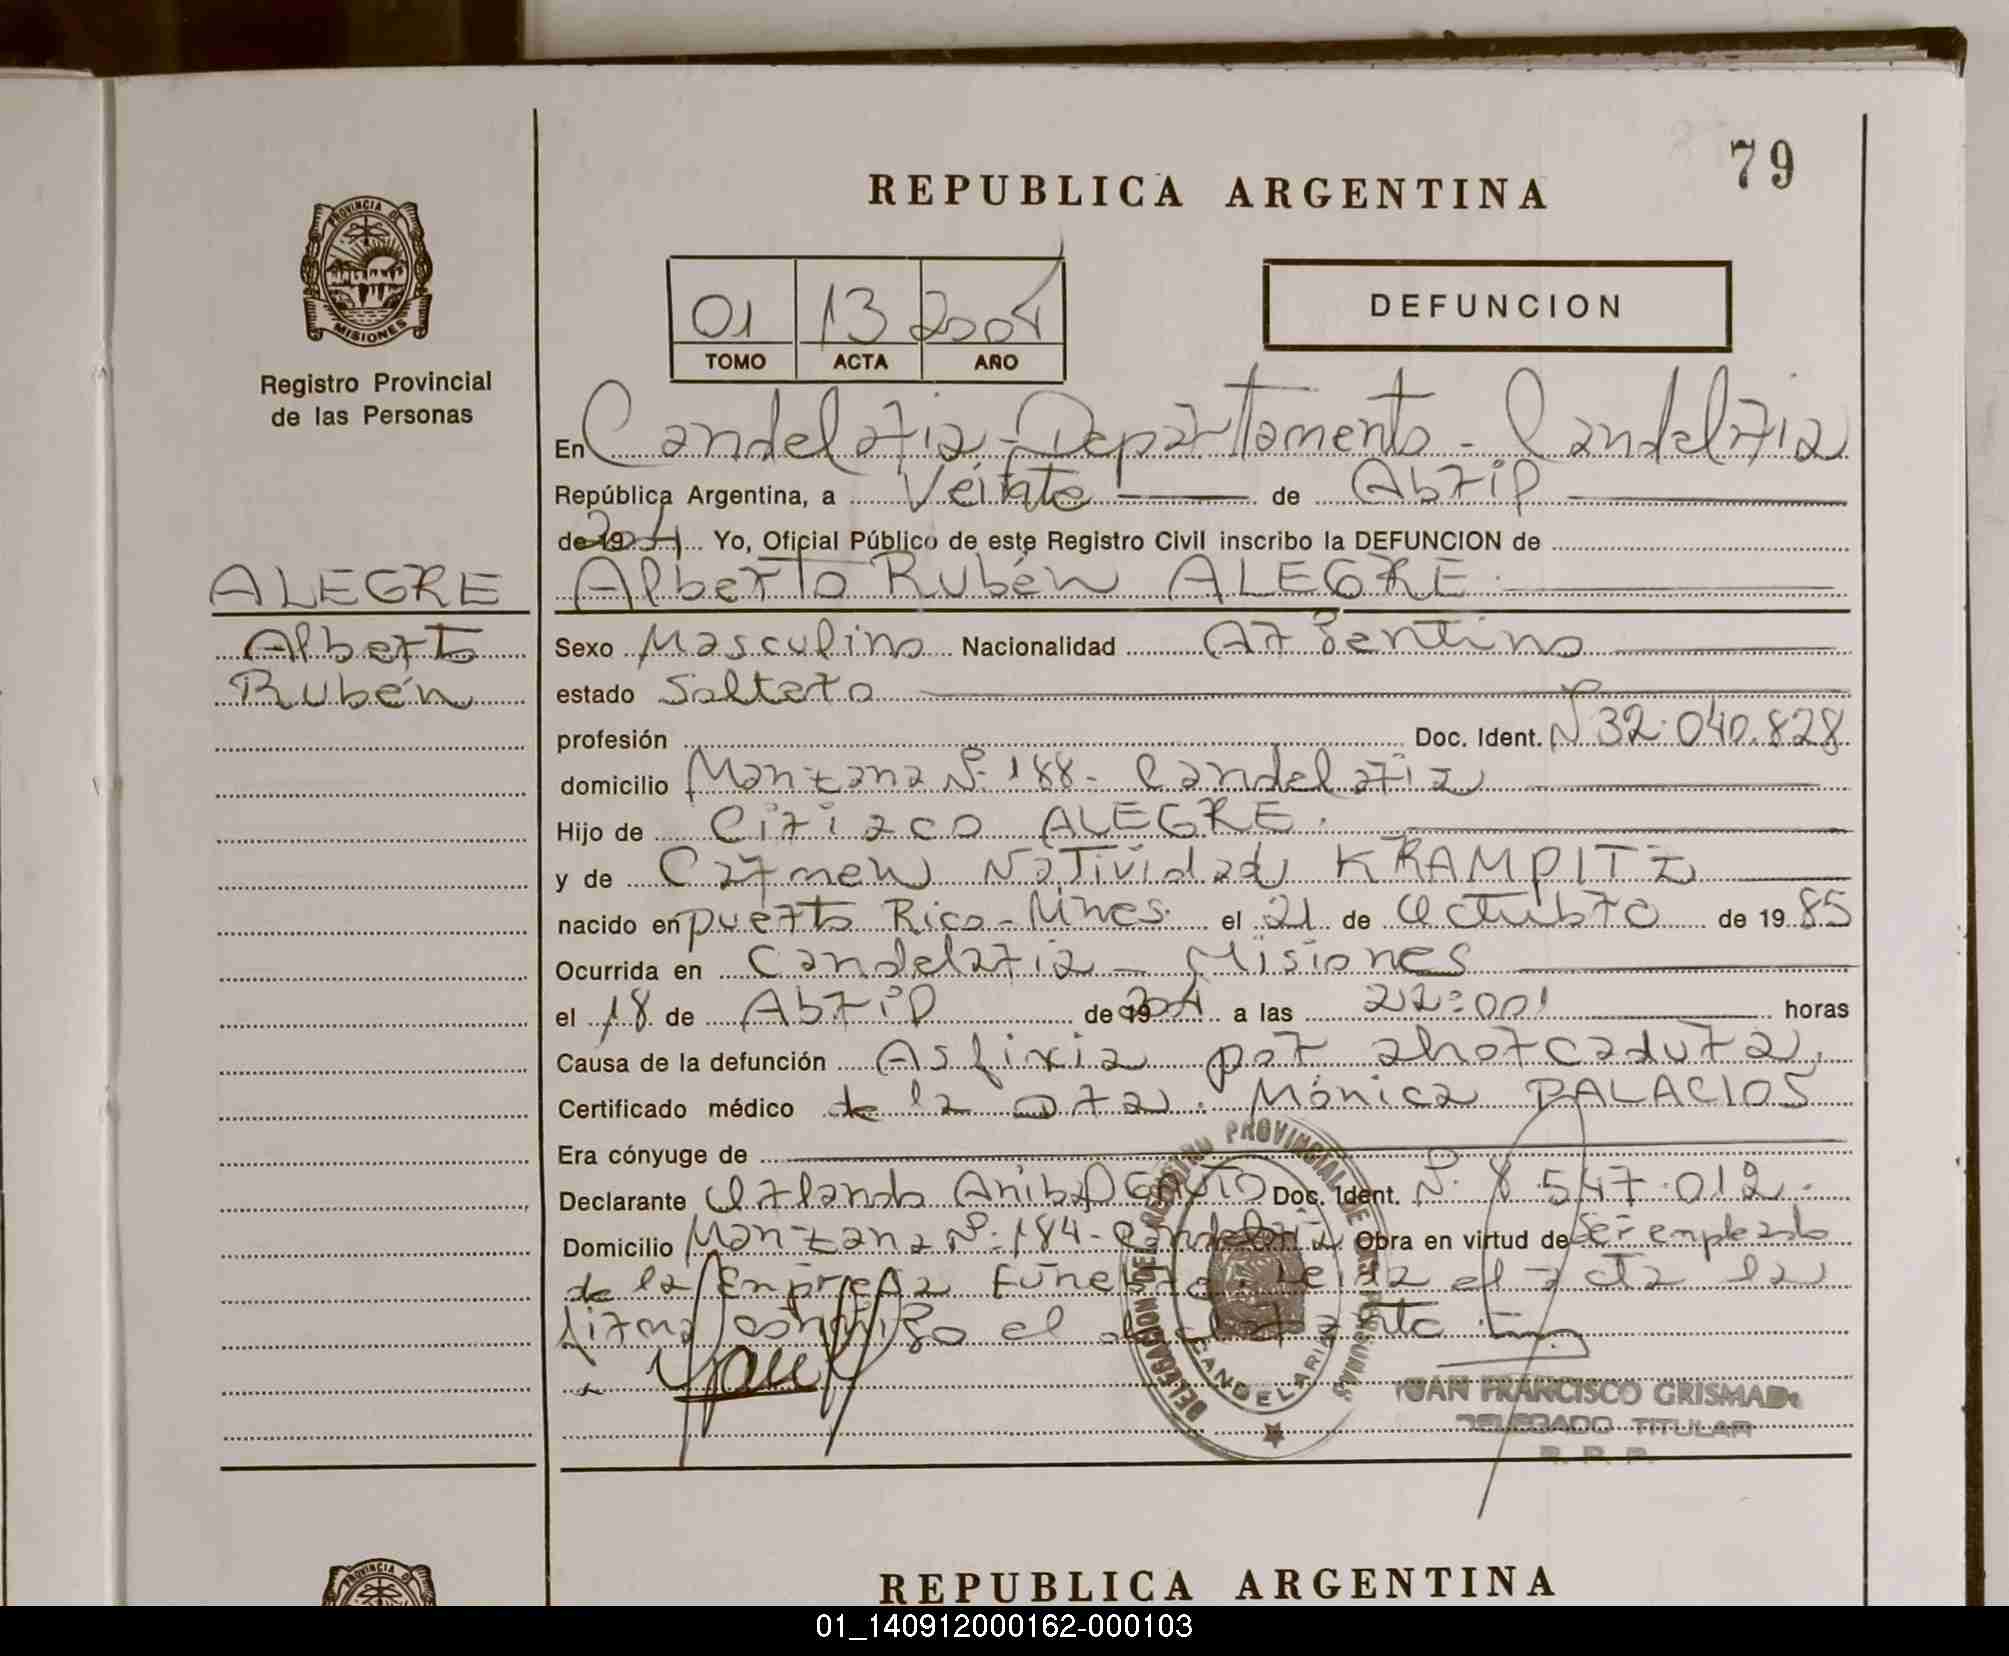 79
REPUBLICA ARGENTINA
PROVINCIA DE
MISIONES
Registro Provincial
de las Personas
01 13 2004
TOMO ACTA AÑO
DEFUNCION
En Candelaria - Departamento - Candelaria
República Argentina, a Veinte de Abril
de 19 2004 Yo, Oficial Público de este Registro Civil inscribo la DEFUNCION de
ALEGRE
Alberto
Rubén
Alberto Rubén ALEGRE.
Sexo Masculino Nacionalidad Argentino
estado Soltero
profesión Doc. Ident. Nº 32.040.828
domicilio Manzana Nº 188 - Candelaria
Hijo de Ciriaco ALEGRE.
y de Carmen Natividad KRAMPITZ
nacido en Puerto Rico - Mnes. el 21 de Octubre de 19 85
Ocurrida en Candelaria - Misiones
el 18 de Abril de 19 2004 a las 22:00 horas
Causa de la defunción Asfixia por ahorcadura,
Certificado médico de la Dra. Mónica PALACIOS
Era cónyuge de
Declarante Orlando Anibal Doc. Ident. Nº 8.547.012.
Domicilio Manzana Nº 184 - Candelaria Obra en virtud de Ser empleado
de la Empresa Funebre. Leida el acta la
firma conmigo el declarante
DELEGACION DEL REGISTRO PROVINCIAL DE LAS PERSONAS
CANDELARIA
JUAN FRANCISCO GRISMADO
DELEGADO TITULAR
R. P. P.
PROVINCIA DE
REPUBLICA ARGENTINA
01_140912000162-000103